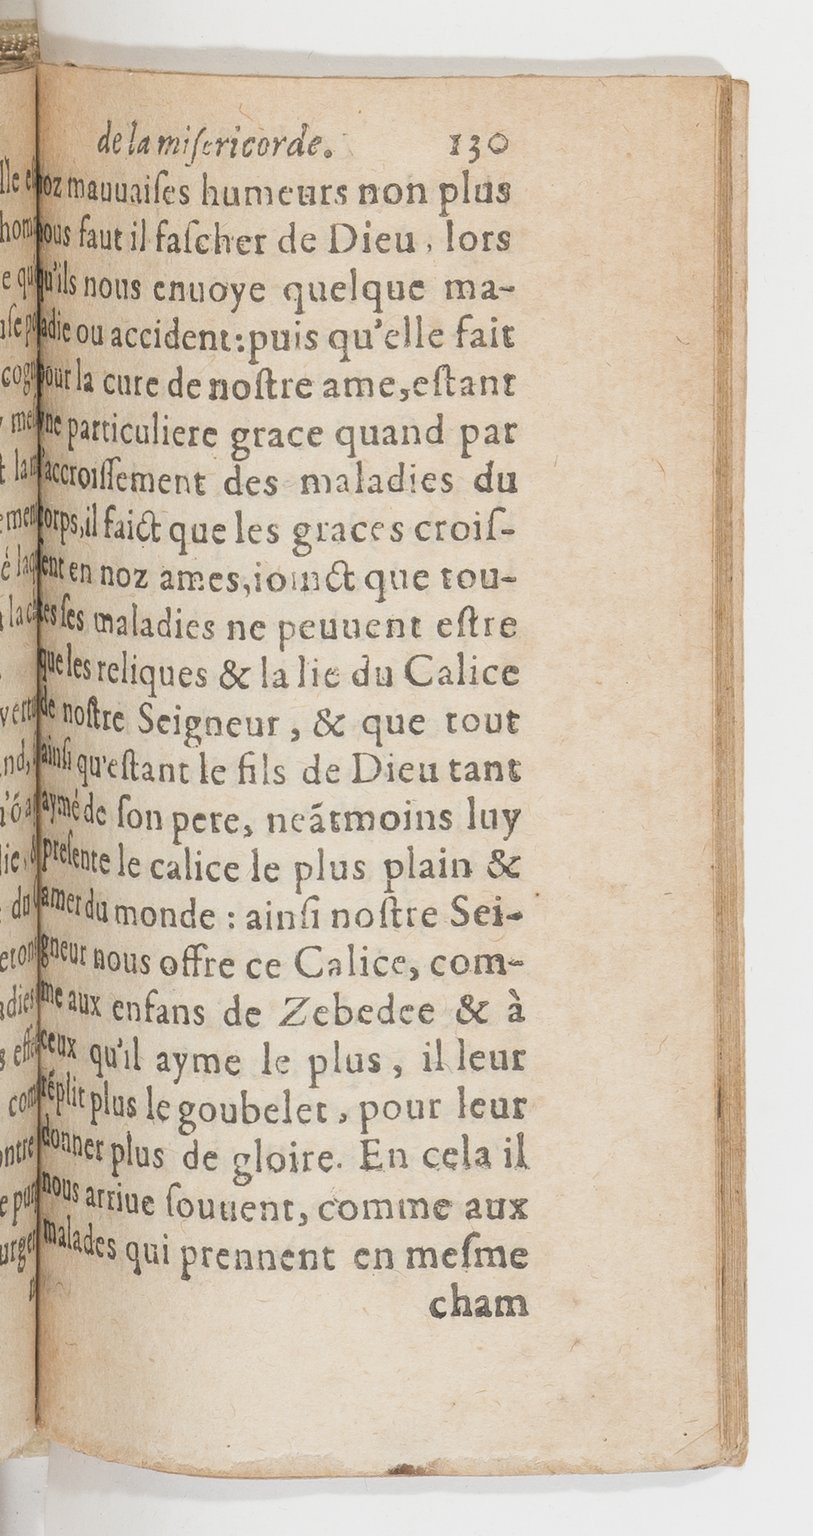 de la miſericorde. 130
noz mauuaiſes humeurs non plus
nous faut il faſcher de Dieu, lors
qu'ils nous enuoye quelque ma-
ladie ou accident: puis qu'elle fait
pour la cure de noſtre ame, eſtant
vne particuliere grace quand par
l'accroiſſement des maladies du
corps, il faict que les graces croiſ-
ſent en noz ames, ioinct que tou-
tes ſes maladies ne peuuent eſtre
que les reliques & la lie du Calice
de noſtre Seigneur, & que tout
ainſi qu'eſtant le fils de Dieu tant
aymé de ſon pere, neátmoins luy
preſente le calice le plus plain &
amer du monde : ainſi noſtre Sei-
gneur nous offre ce Calice, com-
me aux enfans de Zebedee & à
ceux qu'il ayme le plus, il leur
réplit plus le goubelet, pour leur
donner plus de gloire. En cela il
nous arriue ſouuent, comme aux
malades qui prennent en meſme
cham